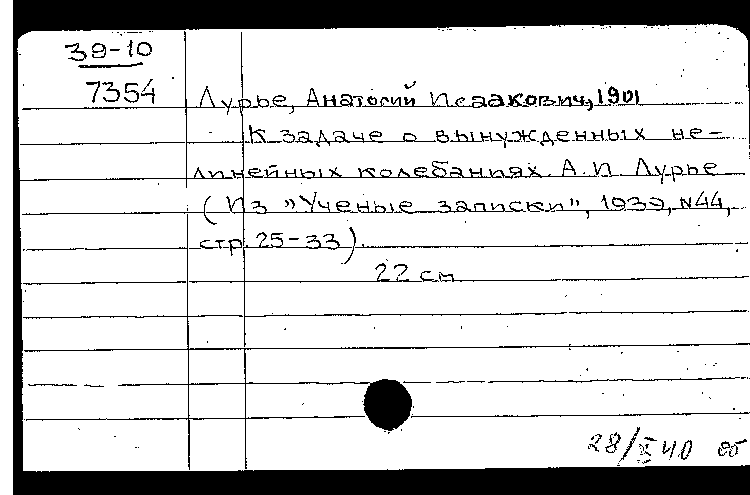 39-10
7354
Лурье, Анатолий Исаакович, 1901
К задаче о вынужденных не-
линейных колебаниях. А.И. Лурье
(Из "Ученые записки", 1939, N44,
стр. 25-33).
22 см
28/X 40 об